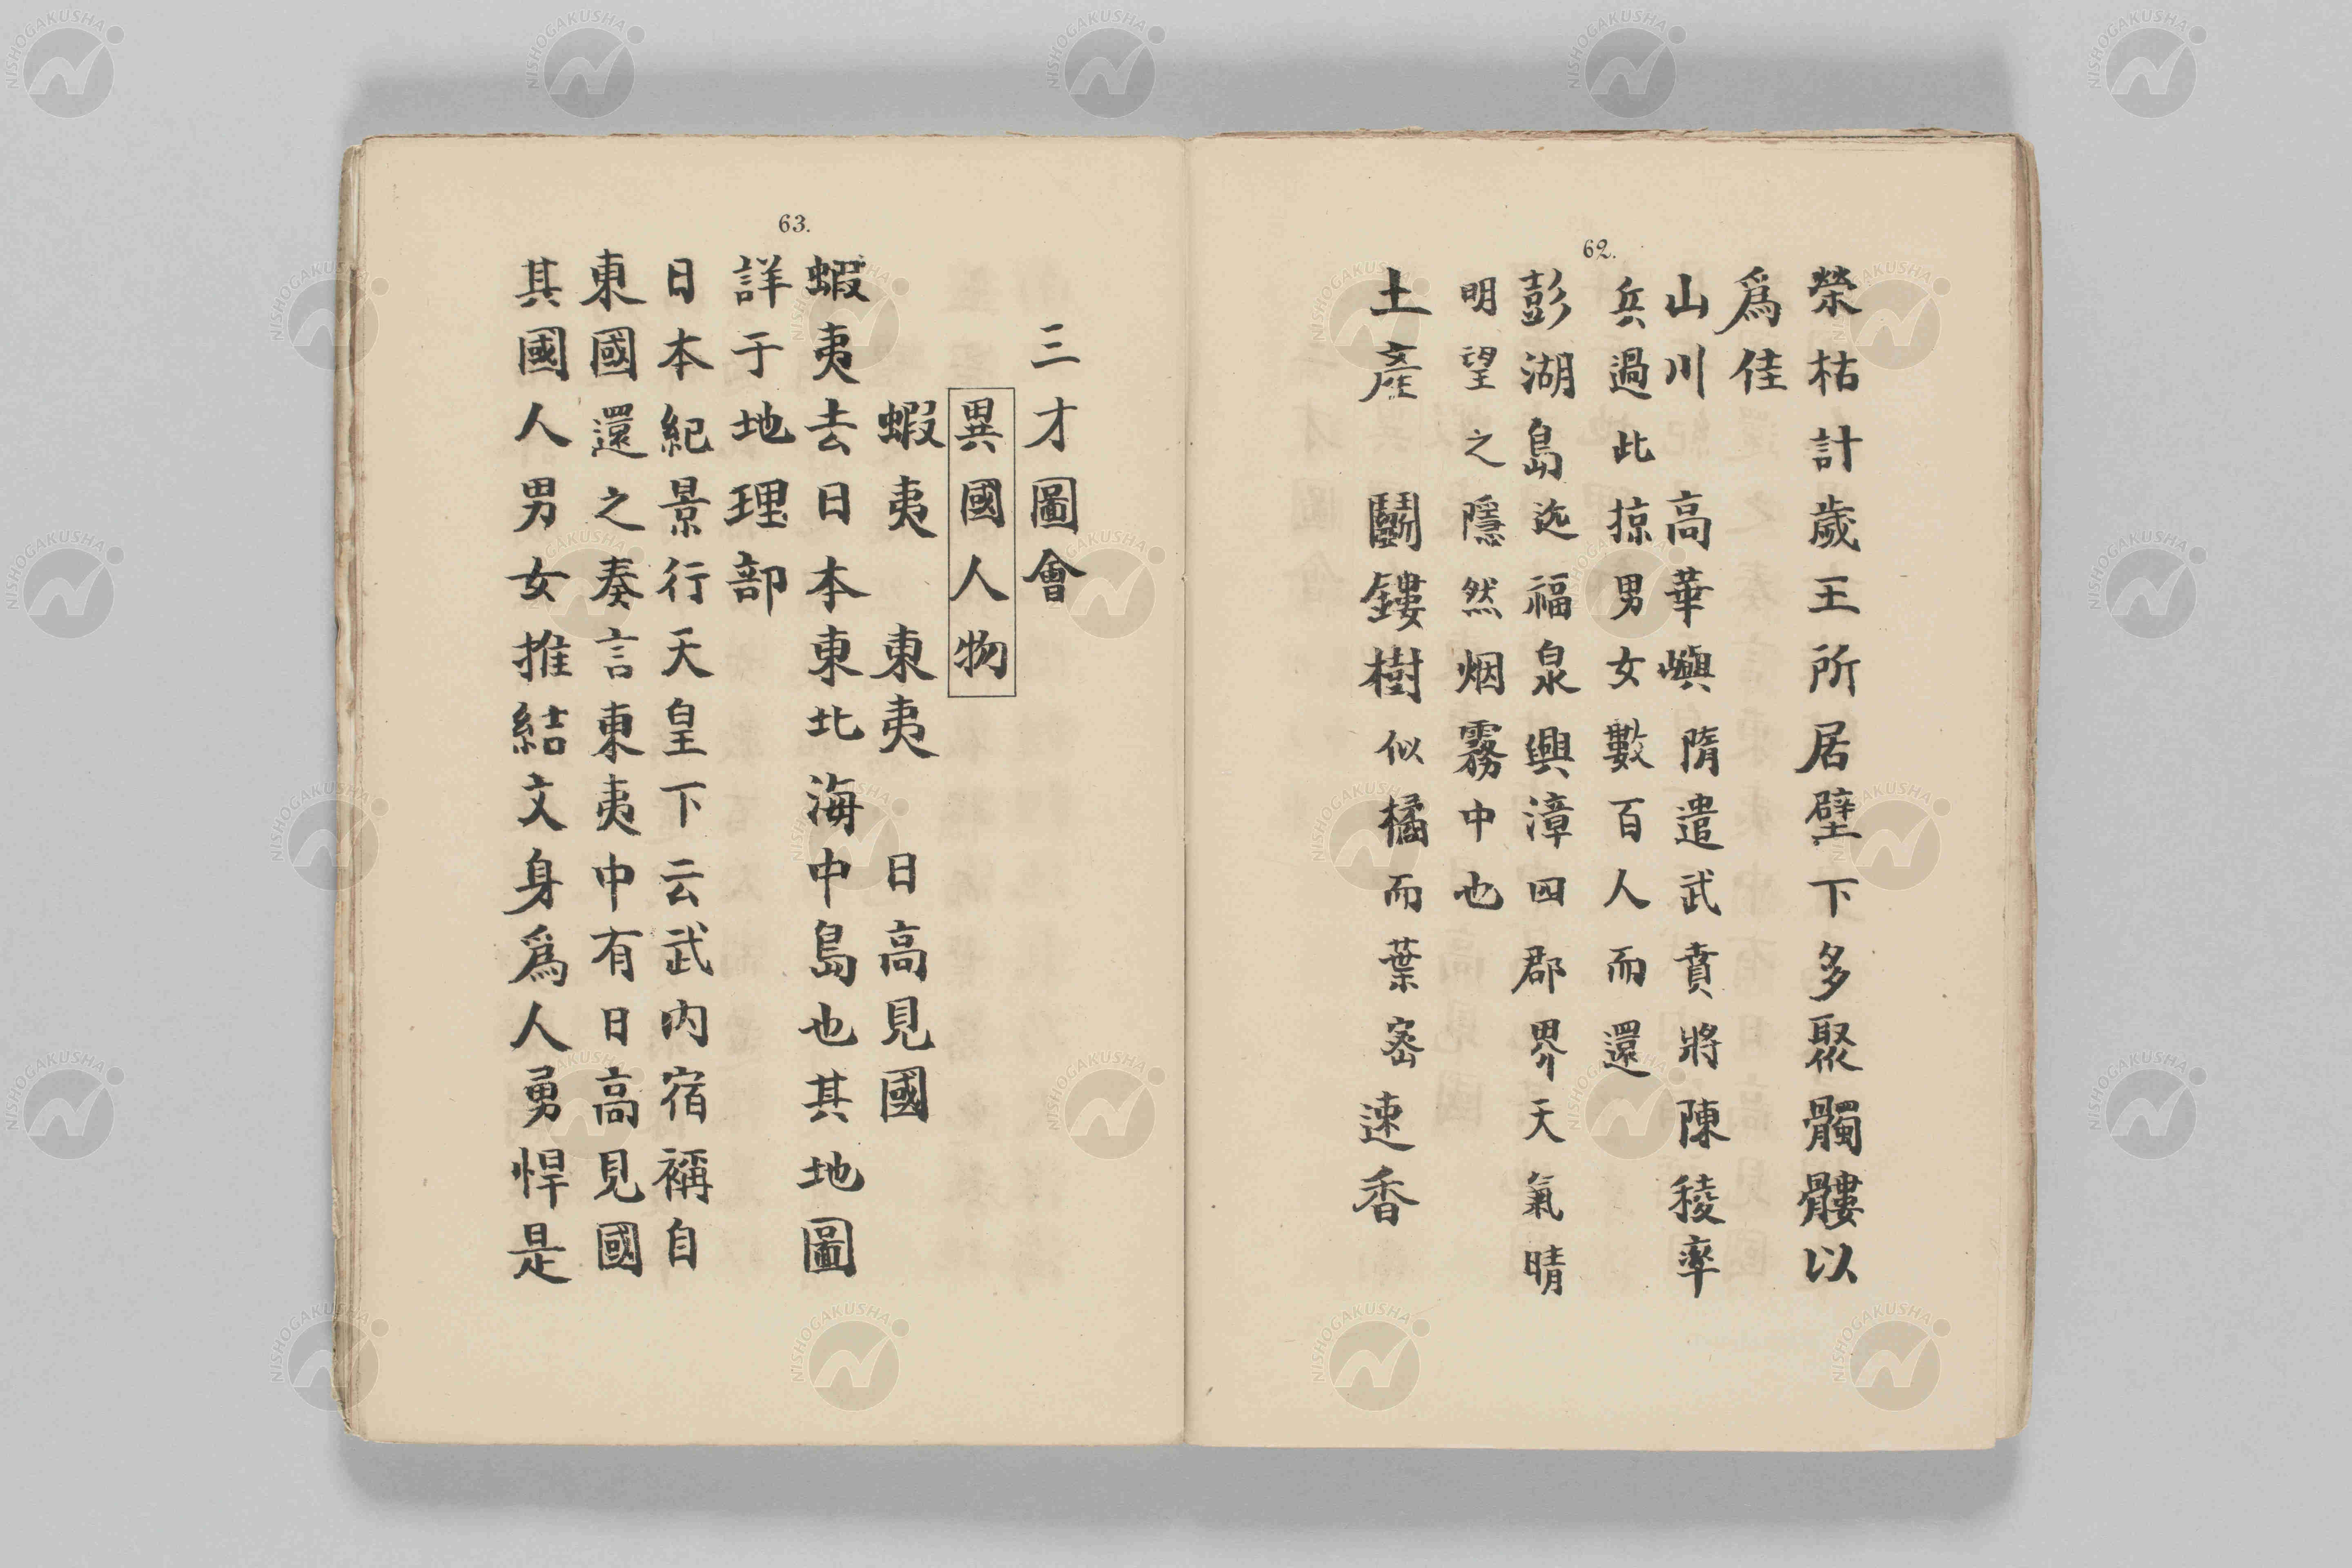 62.
榮枯計歲王所居壁下多聚髑髏以
爲佳
山川 高華嶼 隋遣武賁將陳稜率
兵過此掠男女數百人而還
彭湖島 迄福泉興漳四郡界天氣晴
明望之隱然烟霧中也
土產 鬭鏤樹 似橘而葉密 速香
63.
三才圖會
異國人物
蝦夷 東夷 日高見國
蝦夷去日本東北海中島也其地圖
詳于地理部
日本紀景行天皇下云武内宿禰自
東國還之奏言東夷中有日高見國
其國人男女推結文身爲人勇悍是
NISHOGAKUSHA